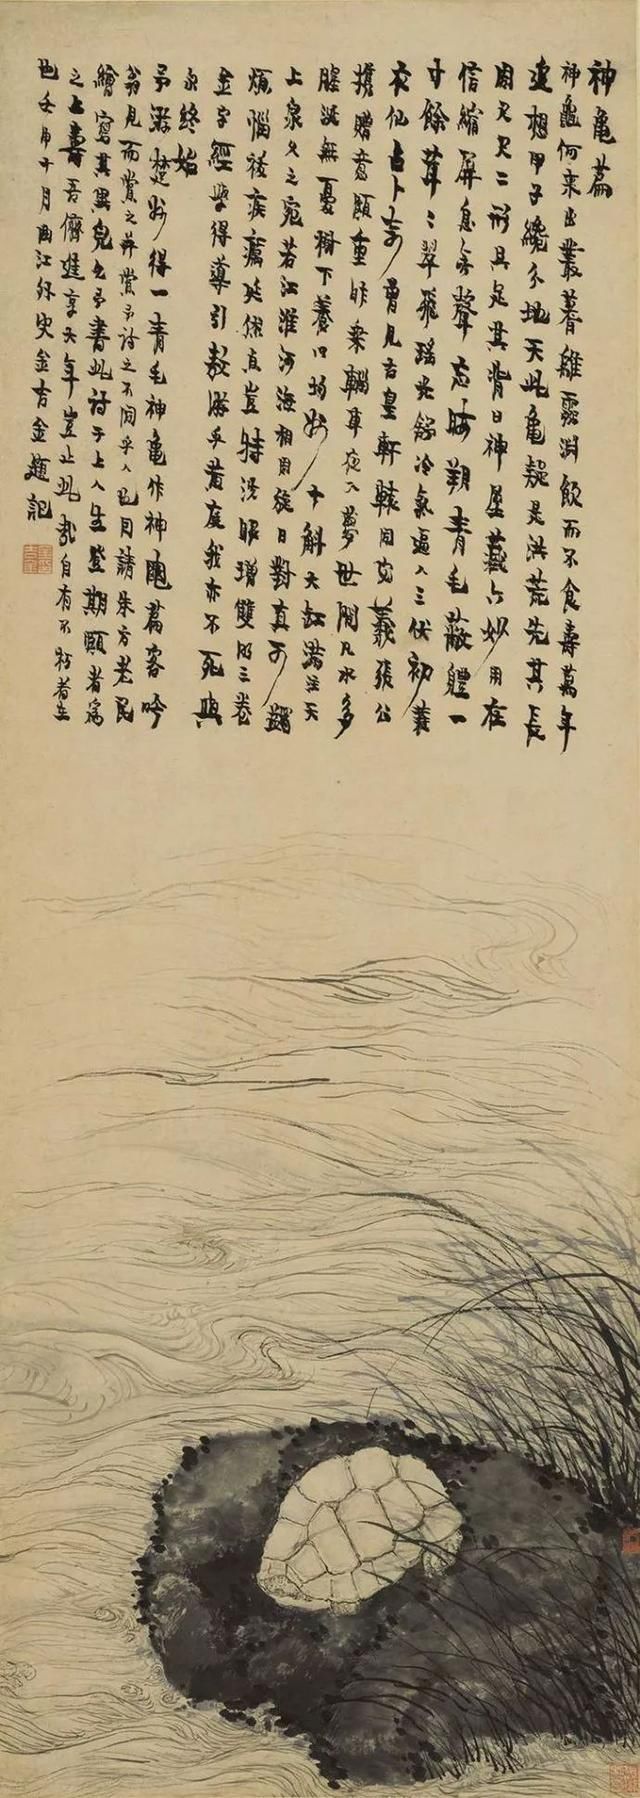 神龜篇
神龜何來出叢蓍淵飲而不食壽萬年
遠想甲子纔分地天此龜疑是洪荒先其長
周尺尺二形具足其背日神屋藏六妙用在
信縮屏息無聲忘晦朔青毛蔽體一
寸餘茸茸翠飛瑤光冷氣逼人三伏初蓑
衣仙占卜奇曾見古皇軒轅同宓羲張公
携贈意頗重昨乘輞車夜入夢世間凡水多
腥涎無憂樹下養以十斛大缸滿注天
上泉久之宛若江淮河海相周旋日對真可蠲
煩惱祛疾癘延豈特洗眼增雙明三卷
金字經學得導引敖游乎黃庭我亦不死與
永終始
予游楚州得一青毛神龜作神龜篇客吟
翁見而賞之并賞予詩之不同乎人也因請朱方老民
繪寫其異予書此詩于上人生登期頤者為
之上壽吾儕進享大年豈止此哉自有不朽者在
也壬申十月曲江外史金吉金題記